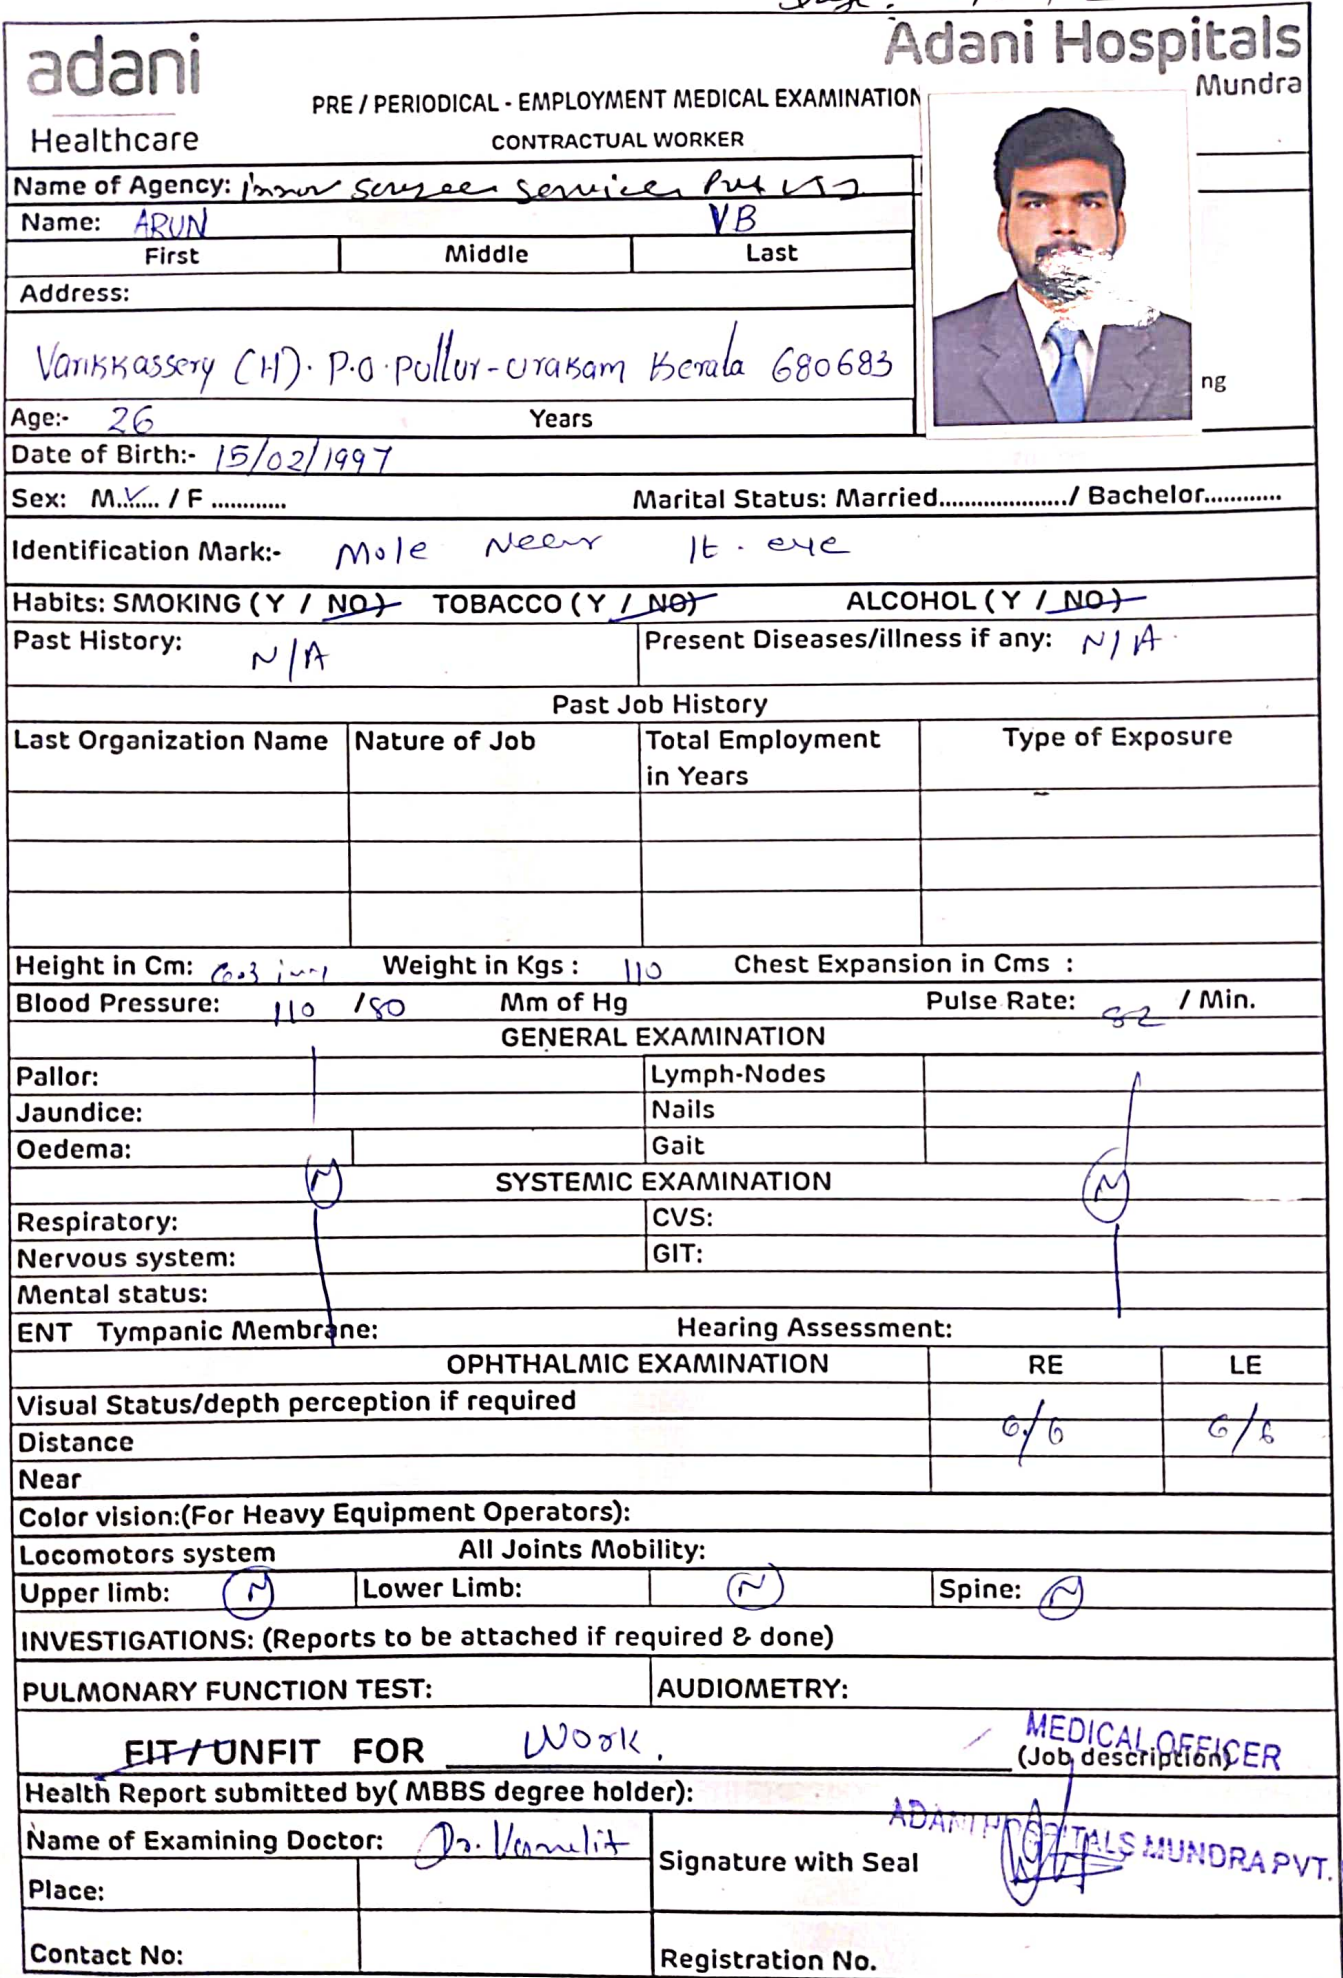 adani
Healthcare
Adani Hospitals
Mundra
PRE / PERIODICAL - EMPLOYMENT MEDICAL EXAMINATION
CONTRACTUAL WORKER
Name of Agency: services Pvt
Name: ARUN VB
First Middle Last
Address:
Varikkassery (H). P.O. Pullur-Urakam Kerala 680683
ng
Age:- 26 Years
Date of Birth:- 15/02/1997
Sex: M....... / F ............ Marital Status: Married..................../ Bachelor............
Identification Mark:- Mole Near lt. eye
Habits: SMOKING ( Y / NO ) TOBACCO ( Y / NO) ALCOHOL ( Y / NO )
Past History: N/A Present Diseases/illness if any: N/A
Past Job History
Last Organization Name Nature of Job Total Employment in Years Type of Exposure
Height in Cm: Weight in Kgs : 110 Chest Expansion in Cms :
Blood Pressure: 110 /80 Mm of Hg Pulse Rate: 82 / Min.
GENERAL EXAMINATION
Pallor: Lymph-Nodes
Jaundice: Nails
Oedema: Gait
N SYSTEMIC EXAMINATION N
Respiratory: CVS:
Nervous system: GIT:
Mental status:
ENT Tympanic Membrane: Hearing Assessment:
OPHTHALMIC EXAMINATION RE LE
Visual Status/depth perception if required
Distance 6/6 6/6
Near
Color vision:(For Heavy Equipment Operators):
Locomotors system All Joints Mobility:
Upper limb: N Lower Limb: N Spine: N
INVESTIGATIONS: (Reports to be attached if required & done)
PULMONARY FUNCTION TEST: AUDIOMETRY:
FIT / UNFIT FOR Work. (Job description)
MEDICAL OFFICER
Health Report submitted by( MBBS degree holder):
ADANI HOSPITALS MUNDRA PVT.
Name of Examining Doctor: Dr.
Signature with Seal
Place:
Contact No: Registration No.